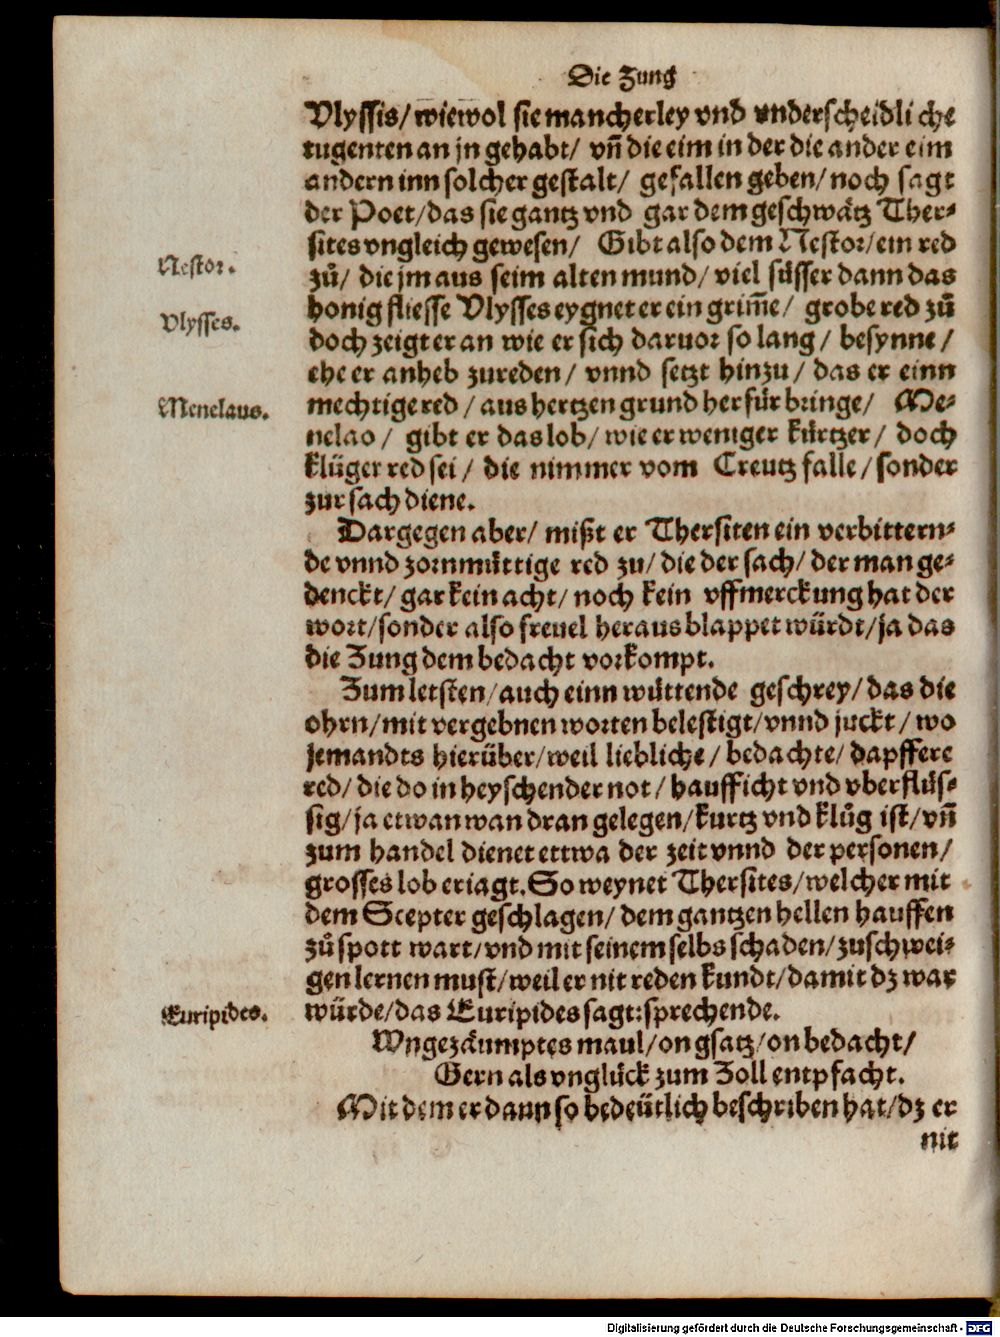 Die Zung
Vlyssis/ wiewol sie mancherley vnd vnderscheidliche
tugenten an jn gehabt/ vñ die eim in der die ander eim
andern inn solcher gestalt/ gefallen geben/ noch sagt
der Poet/ das sie gantz vnd gar dem geschwätz Ther⸗
sites vngleich gewesen/ Gibt also dem Nestor/ ein red
Nestor.
zů/ die jm aus seim alten mund/ viel süsser dann das
honig fliesse Vlysses eygnet er ein grim̃e/ grobe red zů
Vlysses.
doch zeigt er an wie er sich daruor so lang/ besynne/
ehe er anheb zureden/ vnnd setzt hinzu/ das er einn
mechtige red/ aus hertzen grund herfür bringe/ Me⸗
Menelaus.
nelao/ gibt er das lob/ wie er weniger kürtzer/ doch
klüger red sei/ die nimmer vom Creutz falle/ sonder
zur sach diene.
Dargegen aber/ mißt er Thersiten ein verbittern⸗
de vnnd zornmüttige red zu/ die der sach/ der man ge⸗
denckt/ gar kein acht/ noch kein vffmerckung hat der
wort/ sonder also freuel heraus blappet würdt/ ja das
die Zung dem bedacht vorkompt.
Zum letsten/ auch einn wüttende geschrey/ das die
ohrn/ mit vergebnen worten belestigt/ vnnd juckt/ wo
jemandts hierüber/ weil liebliche/ bedachte/ dapffere
red/ die do in heyschender not/ haufficht vnd vberflüs⸗
sig/ ja etwan wan dran gelegen/ kurtz vnd klůg ist/ vñ
zum handel dienet ettwa der zeit vnnd der personen/
grosses lob eriagt. So weynet Thersites/ welcher mit
dem Scepter geschlagen/ dem gantzen hellen hauffen
zů spott wart/ vnd mit seinem selbs schaden/ zuschwei⸗
gen lernen must/ weil er nit reden kundt/ damit dz war
würde/ das Euripides sagt: sprechende.
Euripides.
Vngezäumptes maul/ on gsatz/ on bedacht/
Gern als vnglück zum Zoll entpfacht.
Mit dem er dann so bedeütlich beschriben hat/ dz er
nit
Digitalisierung gefördert durch die Deutsche Forschungsgemeinschaft - DFG